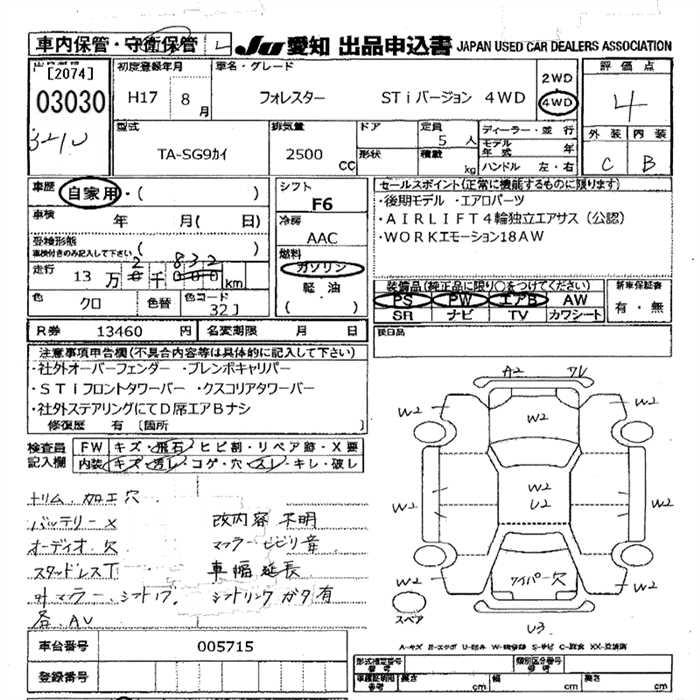 車内保管・守衛保管
JU 愛知 出品申込書 JAPAN USED CAR DEALERS ASSOCIATION
[2074]
03030
初度登録年月
H17 8月
車名・グレード
フォレスター STiバージョン 4WD
2WD
4WD
評価点
4
外装 内装
C B
型式
TA-SG9カイ
排気量
2500 CC
ドア
形状
定員
5人
積載
kg
ディーラー・並行
モデル年式 年
ハンドル 左・右
車歴
自家用・( )
車検
年 月( 日)
受検形態
車検付きのみ記入して下さい
( )
走行
13万2千832km
色
クロ
色替
色コード
32J
シフト
F6
冷房
AAC
燃料
ガソリン
軽・油
( )
セールスポイント(正常に機能するものに限ります)
・後期モデル ・エアロパーツ
・AIRLIFT4輪独立エアサス(公認)
・WORKエモーション18AW
装備品(純正品に限り○をつけてください)
PS PW エアB AW
SR ナビ TV カワシート
新車保証書
有・無
後日品
R券 13460円 名変期限 月 日
注意事項申告欄(不具合内容等は具体的に記入して下さい)
・社外オーバーフェンダー ・ブレンボキャリパー
・STiフロントタワーバー ・クスコリアタワーバー
・社外ステアリングにてD席エアBナシ
修復歴 有 [箇所
検査員記入欄
FW キズ・飛石・ヒビ割・リペア跡・X要
内装 キズ・汚レ・コゲ・穴・スレ・キレ・破レ
トリム加工穴
バッテリーX 改内容不明
オーディオ欠 マフラービビリ音
スタッドレスT 車幅延長
外マフラー、シフトノブ、 シフトリンクガタ有
各AV
A2
W2
W2
W2
W2
W2
U2
W2
W2
W2
W2
ワイパー欠
スペア
U3
A-キズ E-エクボ U-凹み W-補修跡 S-サビ C-腐食 XX-交換済
車台番号 005715
登録番号
型式指定番号
類別区分番号
長さ cm 幅 cm 高さ cm